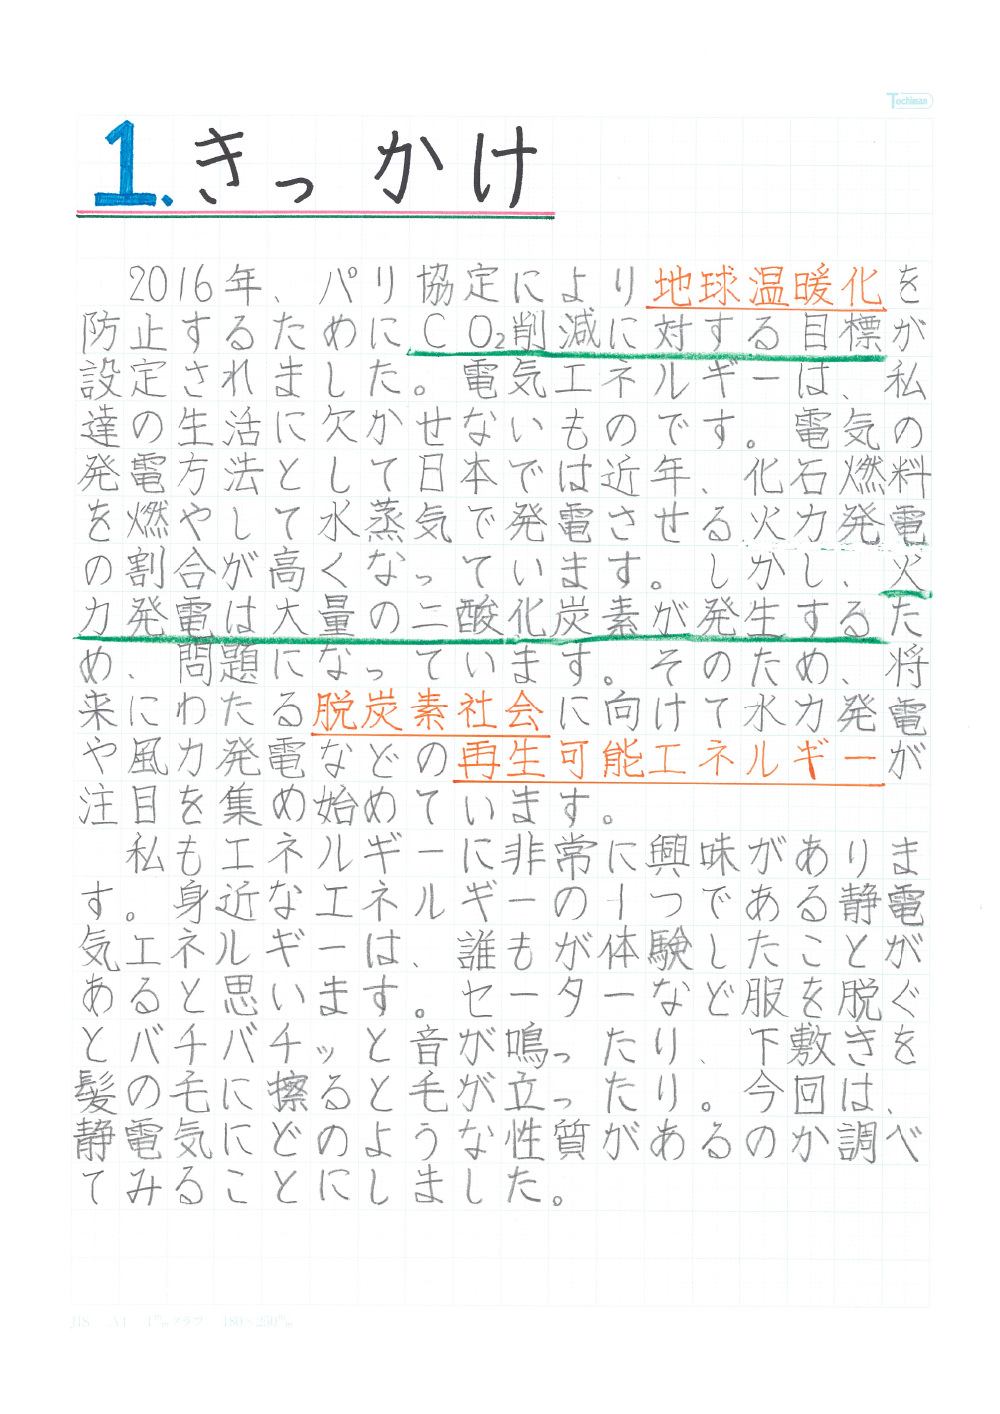 Tochiman
1.きっかけ
2016年、パリ協定により地球温暖化を
防止するためにCO₂削減に対する目標が
設定されました。電気エネルギーは、私
達の生活に欠かせないものです。電気の
発電方法として日本では近年、化石燃料
を燃やして水蒸気で発電させる火力発電
の割合が高くなっています。しかし、火
力発電は大量の二酸化炭素が発生するた
め、問題になっています。そのため、将
来にわたる脱炭素社会に向けて水力発電
や風力発電などの再生可能エネルギーが
注目を集め始めています。
私もエネルギーに非常に興味がありま
す。身近なエネルギーの1つである静電
気エネルギーは、誰もが体験したことが
あると思います。セーターなど服を脱ぐ
とバチバチッと音が鳴ったり、下敷きを
髪の毛に擦ると毛が立ったり。今回は、
静電気にどのような性質があるのか調べ
てみることにしました。
JIS A4 1㎜グラフ 180×250㎜